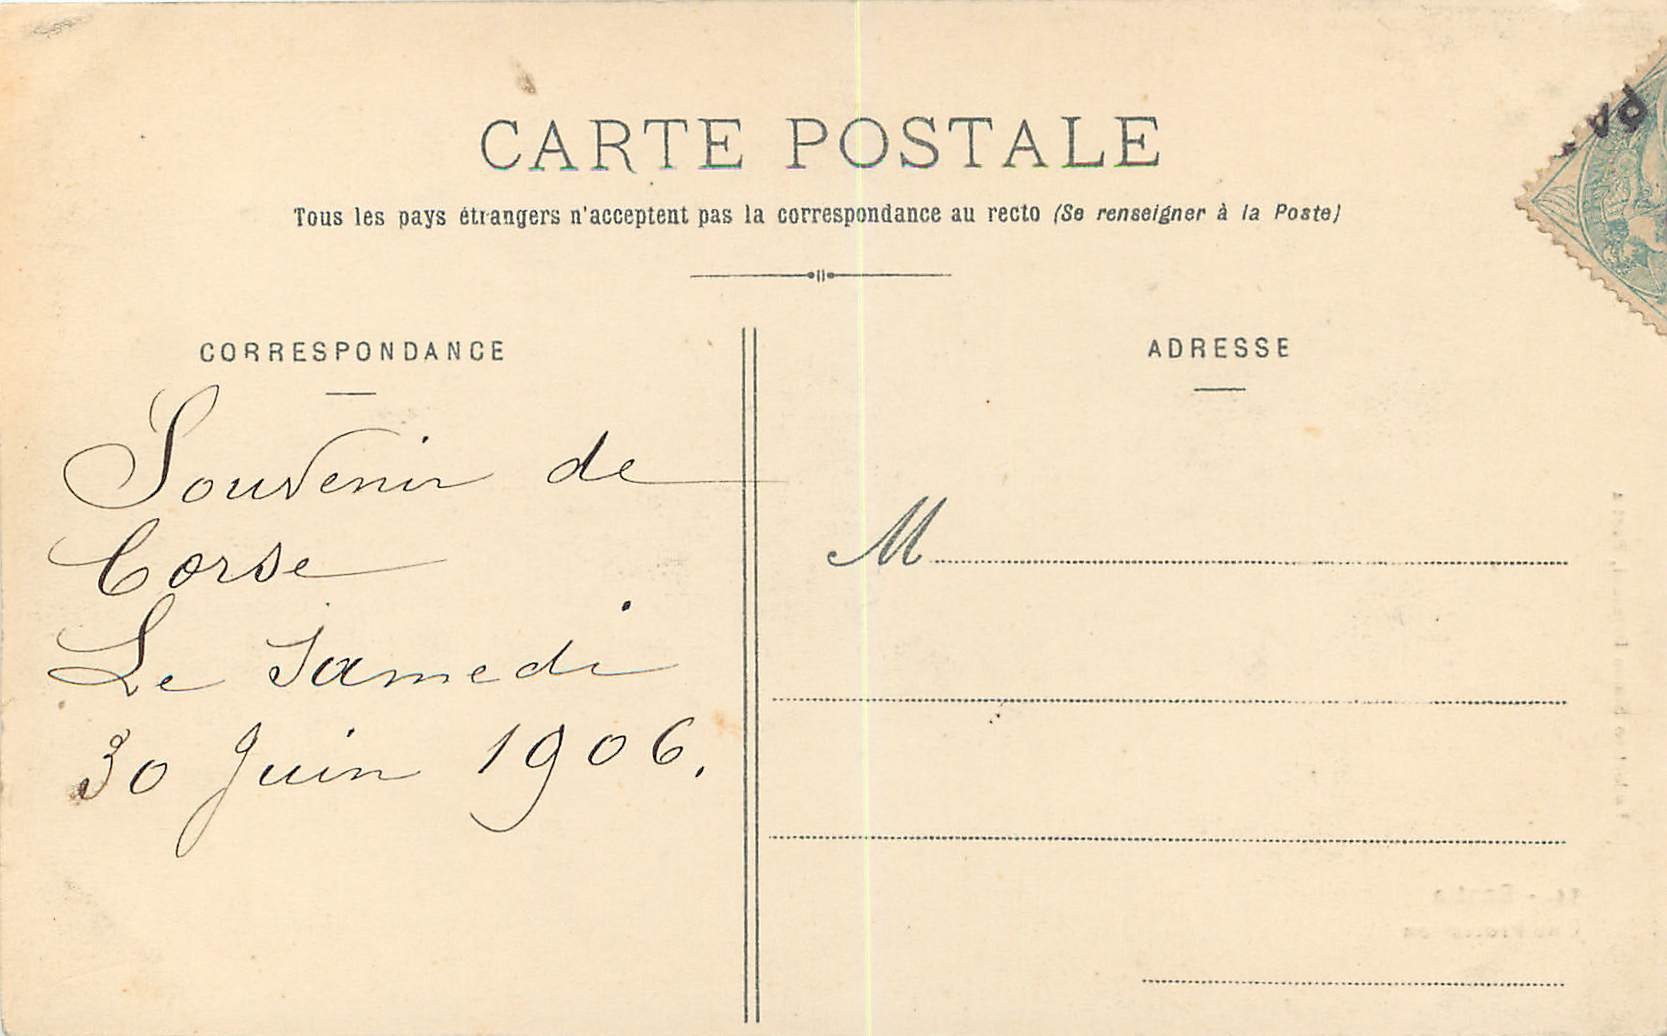 CARTE POSTALE
Tous les pays étrangers n'acceptent pas la correspondance au recto (Se renseigner à la Poste)
CORRESPONDANCE
Souvenir de
Corse
Le Samedi
30 Juin 1906.
ADRESSE
M